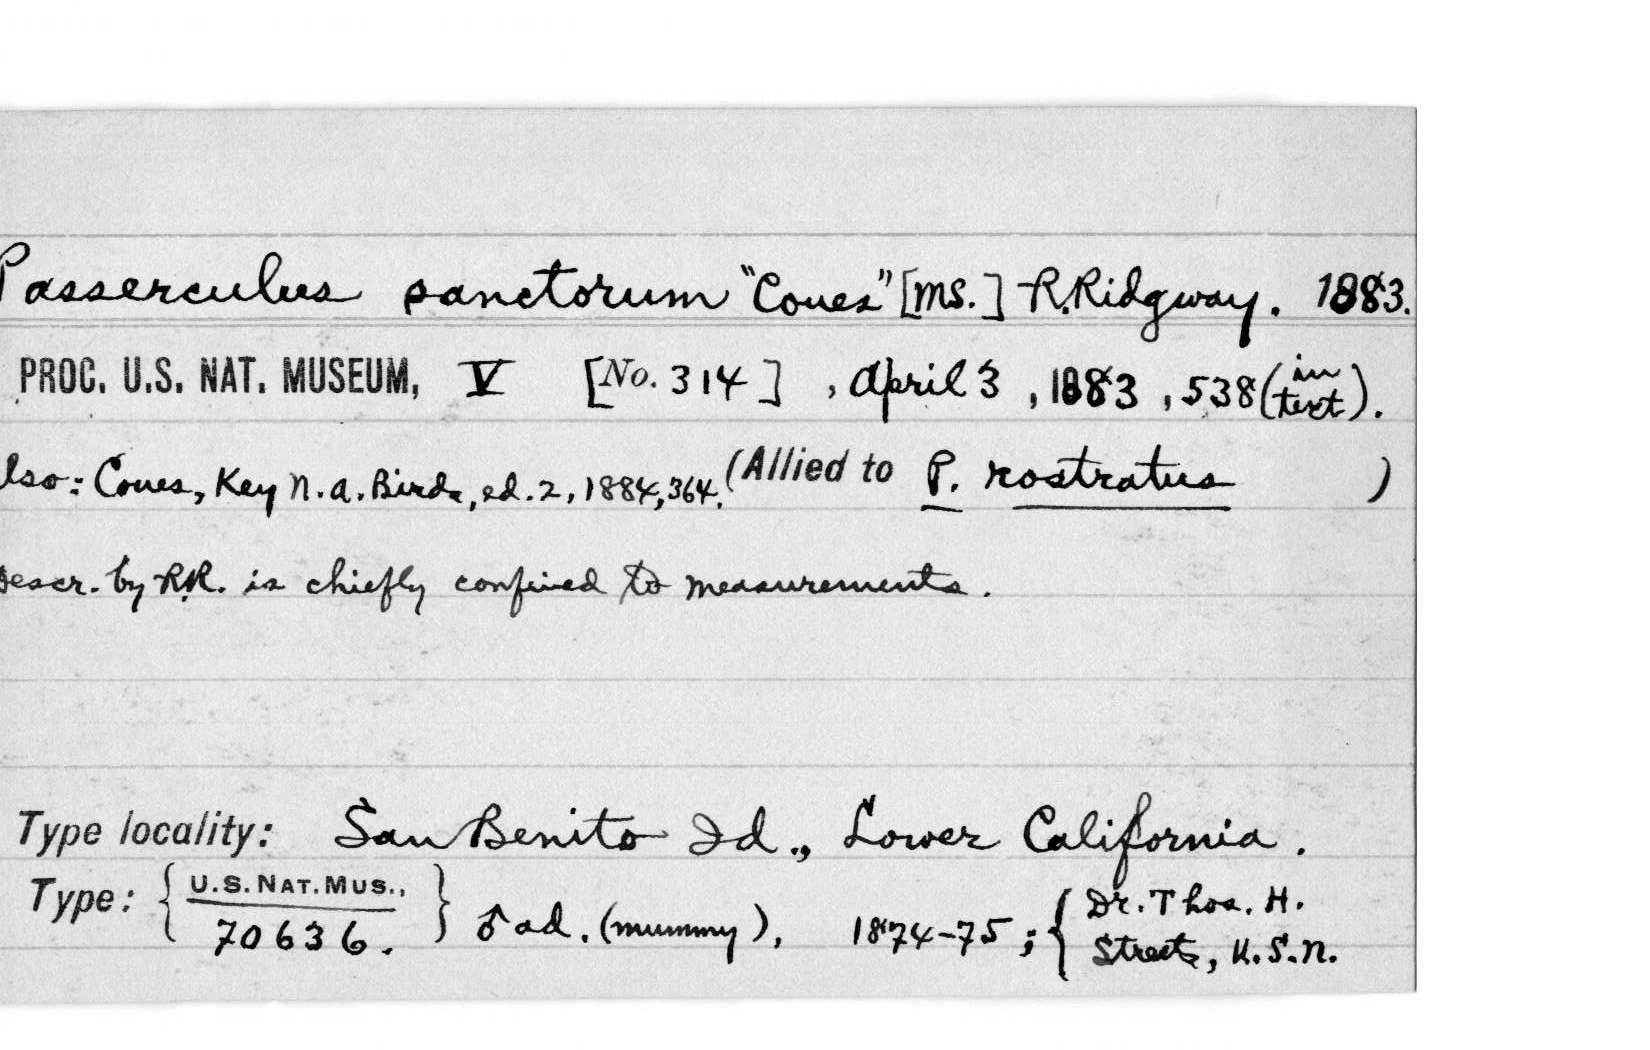 Passerculus sanctorum "Coues" [MS.] R.Ridgway. 1883.
PROC. U.S. NAT. MUSEUM, V [No. 314], April 3, 1883, 538 (in text).
lso: Coues, Key N.A. Birds, ed. 2, 1884, 364. (Allied to P. rostratus )
Descr. by R.R. is chiefly confined to measurements.
Type locality: San Benito Id., Lower California.
Type: { U.S. NAT. MUS., 70636. } ♂ ad. (mummy), 1874-75; { Dr. Thos. H. Streets, U.S.N.